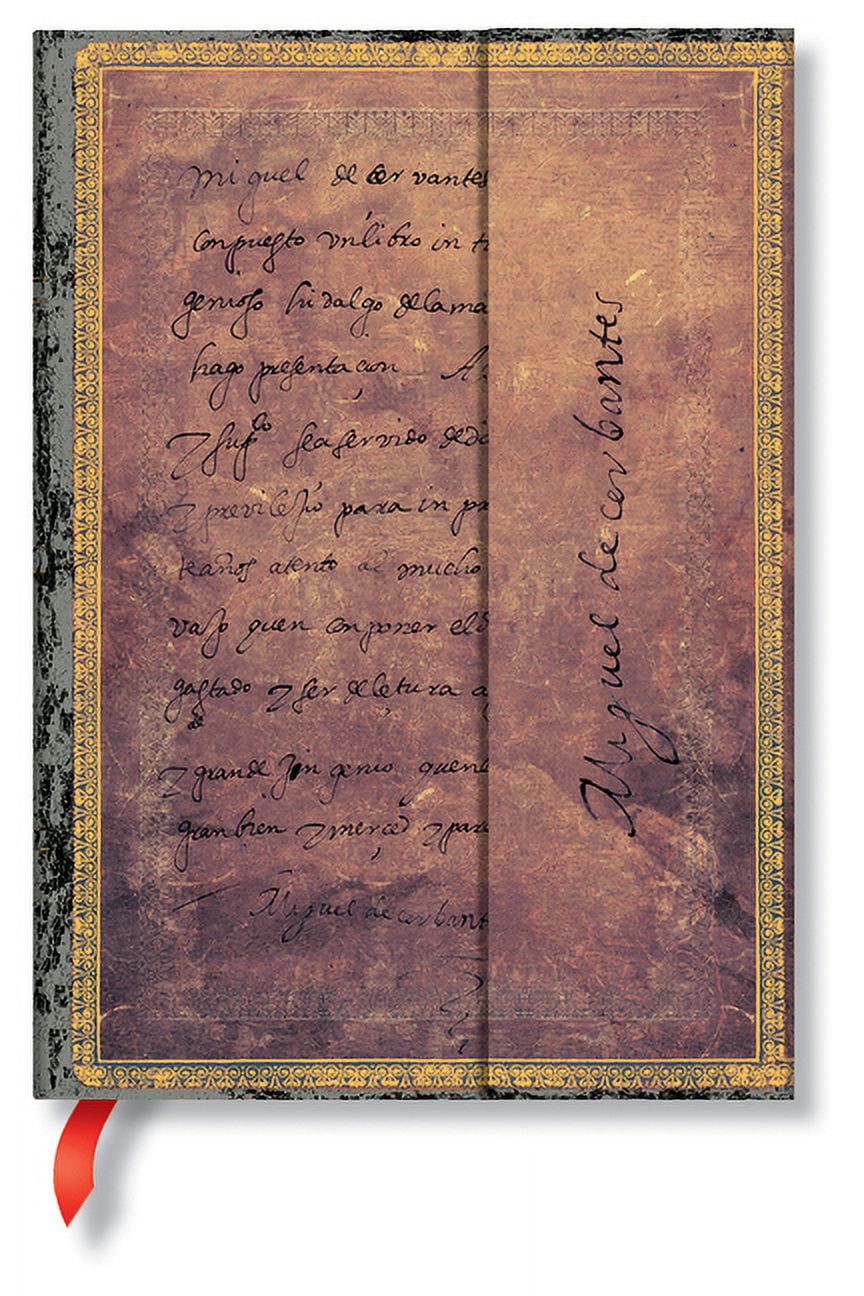 miguel de cervantes
conpuesto vn libro in t
genioso hidalgo de la ma
hago presentacion A
y supco sea servido de da
y previlejio para in pr
te años atento al mucho
vajo quen conponer el d
gastado y ser de letura a
de
y grande jngenio quene
gran bien y merced y para
Miguel de cerbant
Miguel de cerbantes